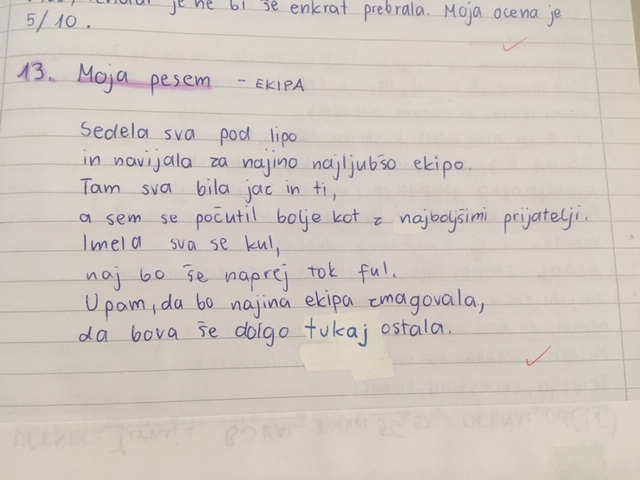 je ne bi še enkrat prebrala. Moja ocena je
5/10.
13. Moja pesem - EKIPA
Sedela sva pod lipo
in navijala za najino najljubšo ekipo.
Tam sva bila jac in ti,
a sem se počutil bolje kot z najboljšimi prijatelji.
Imela sva se kul,
naj bo še naprej tok ful.
Upam, da bo najina ekipa zmagovala,
da bova še dolgo tukaj ostala.